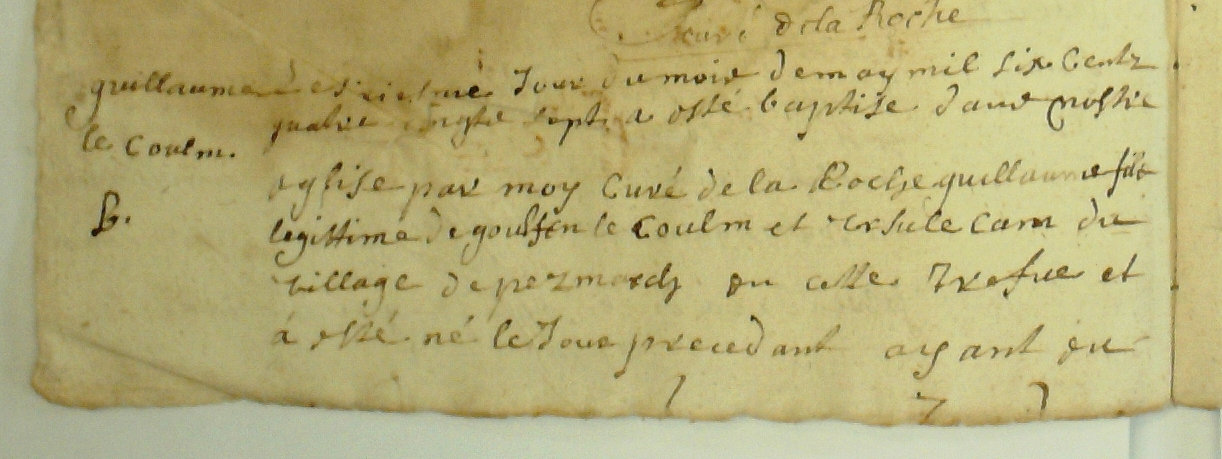 Curé de la Roche
guillaume
le Coulm.
B.
Jour du mois de may mil six Centz
quatre vingts sept a esté baptise dans nostre
eglise par moy Curé de la Roche guillaume fils
legittime de goulfen le Coulm et ursule Cam du
village de pezmarch en cette Trefve et
a esté né le Jour precedant ayant eu